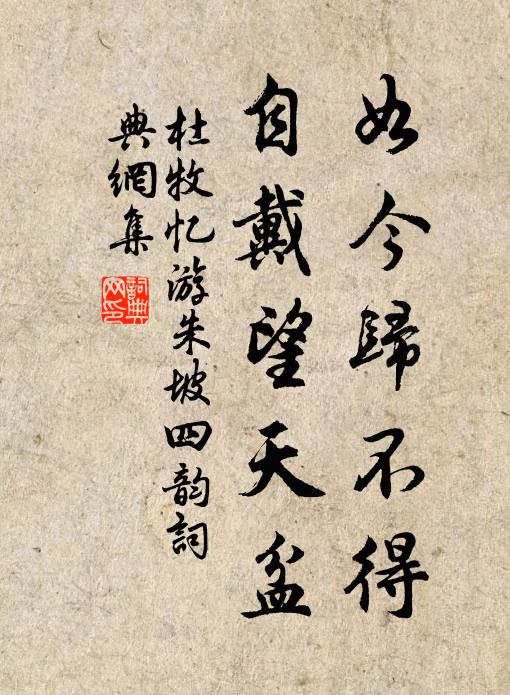 如今歸不得
自戴望天盆
杜牧忆游朱坡四韵詞
典網集
詞典
网印